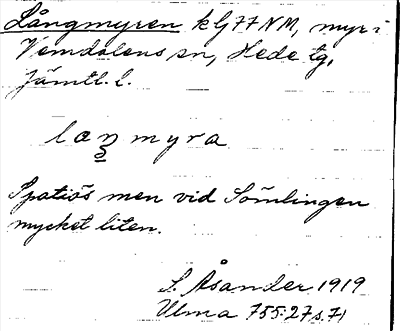 Långmyren k G77NM, myr i
Vemdalens sn, Hede tg,
Jämtl. l.
laŋmyra
Spatiös men vid Sömlingen
mycket liten.
S. Åsander 1919
Ulma 755:27 s. 71